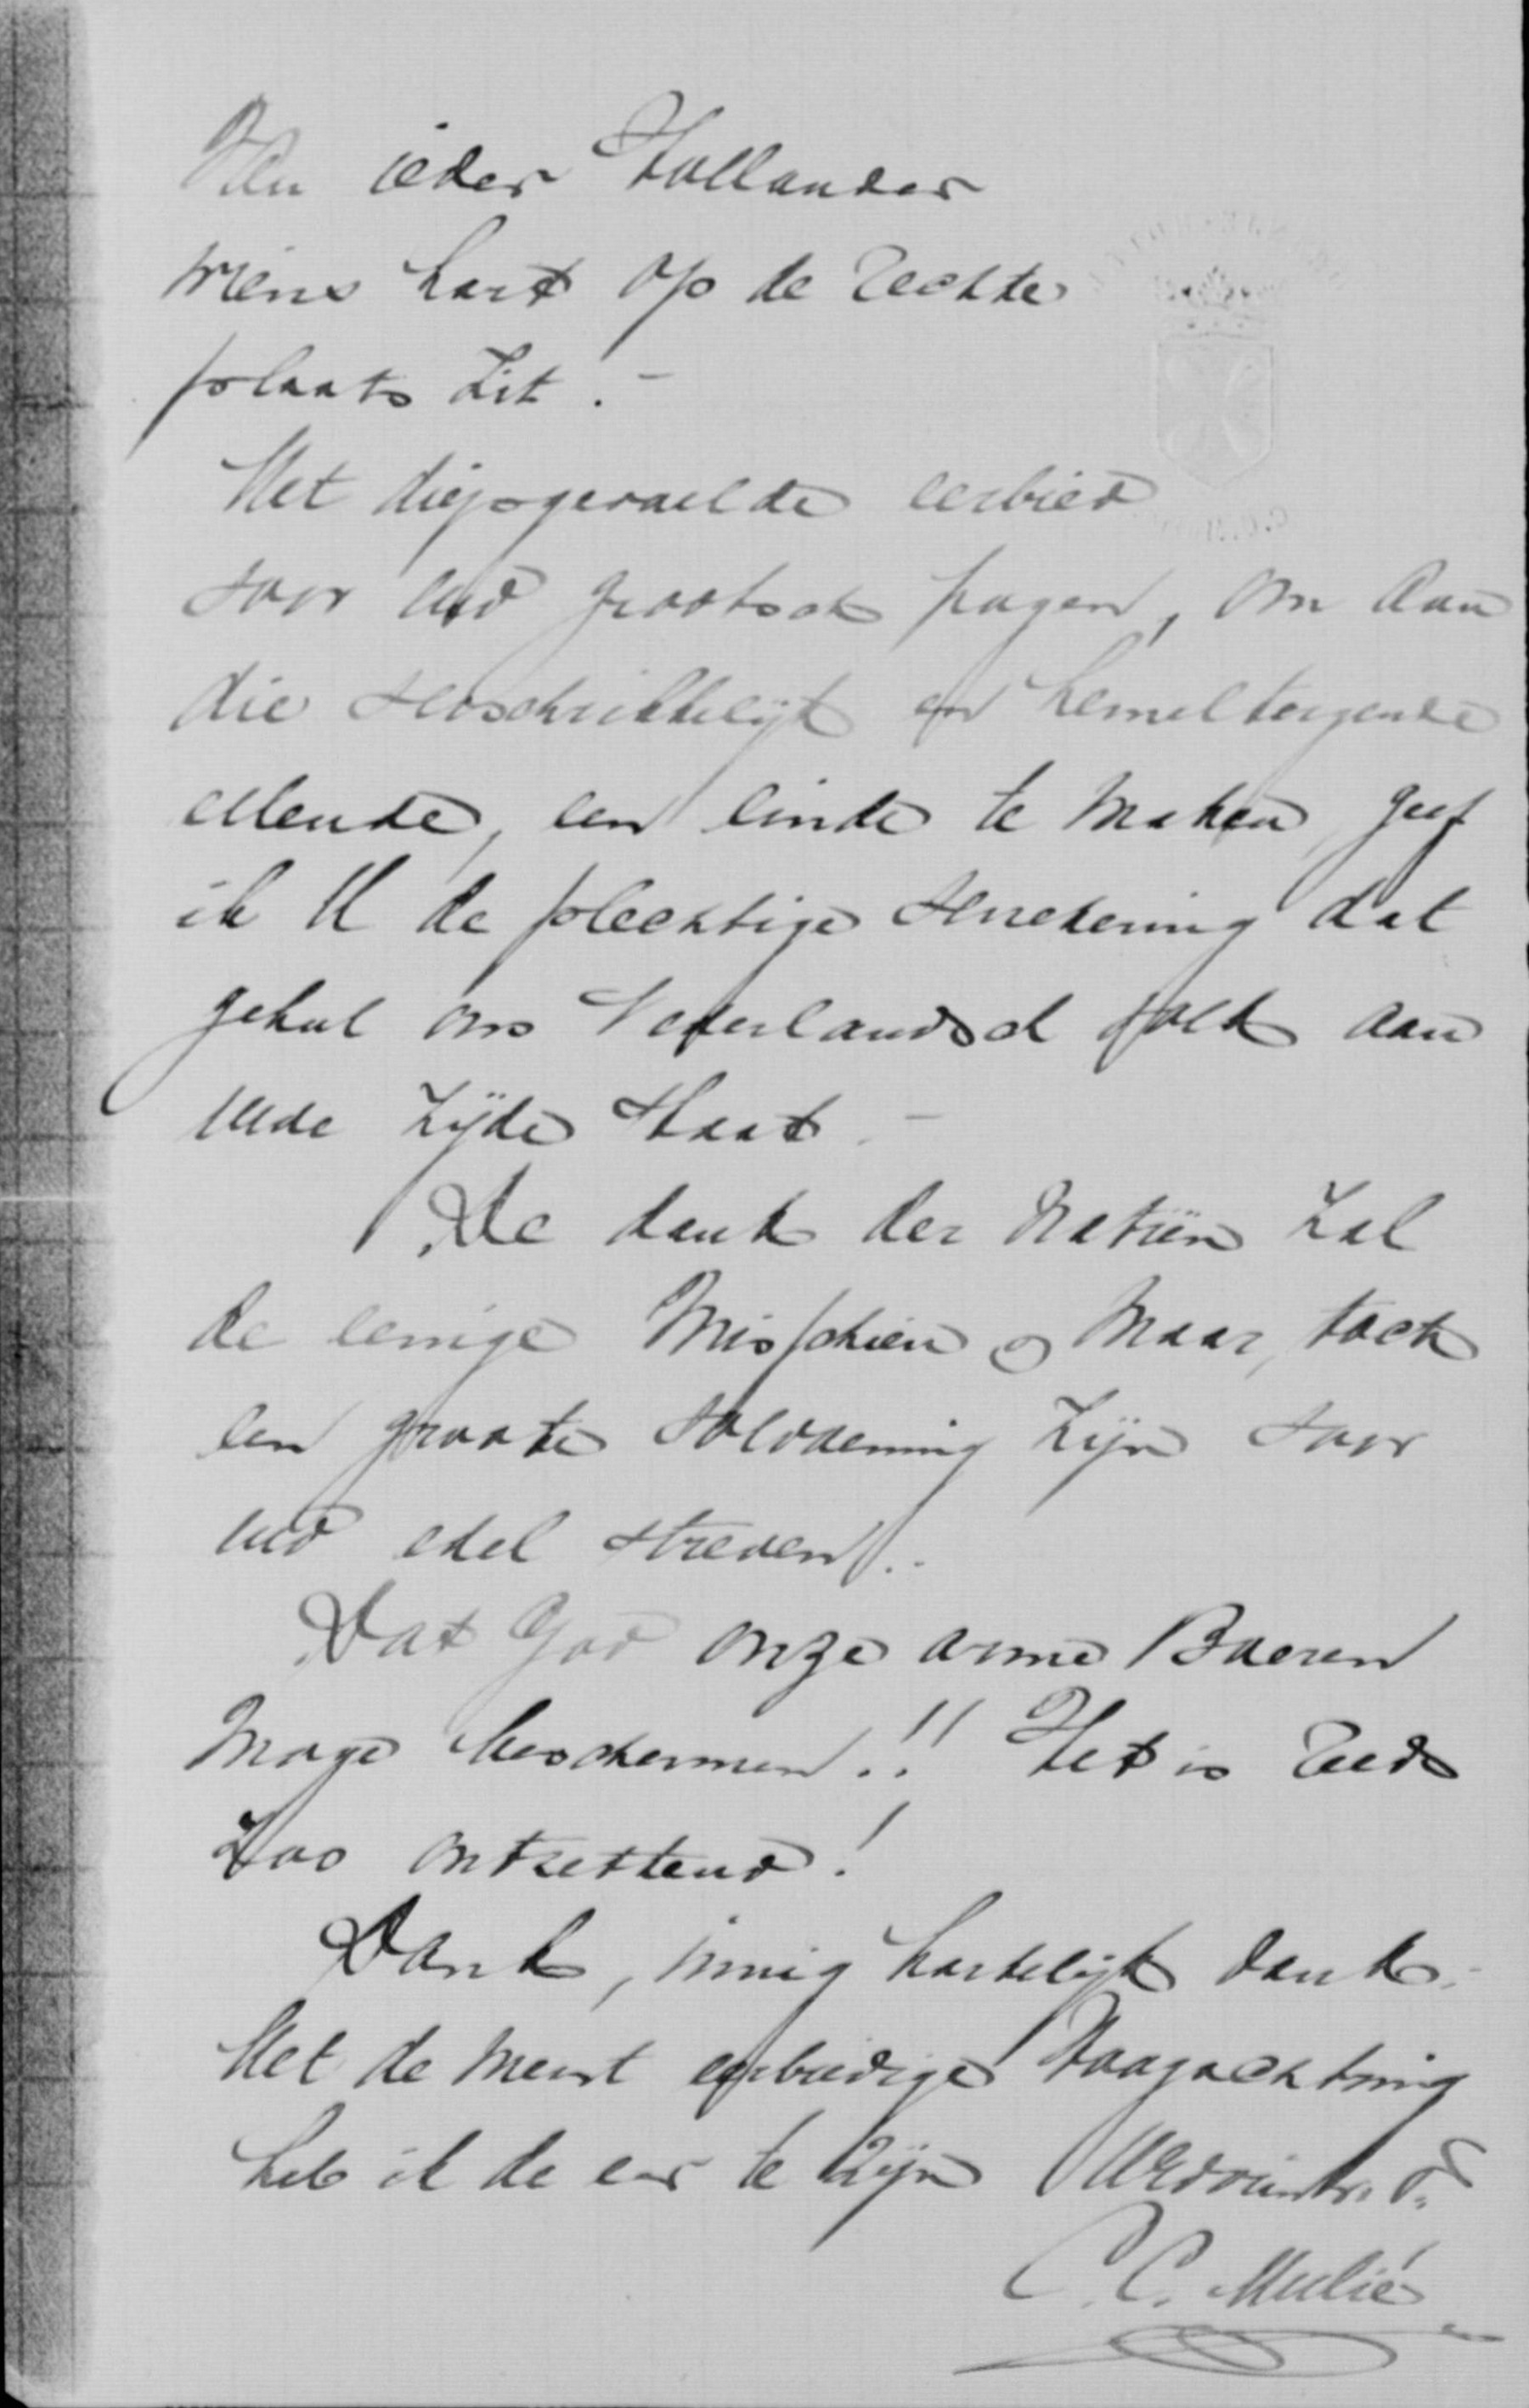 Van ieder Hollander
wiens hart op de rechte
plaats zit. -
Met diepgevoelde eerbied
voor uw grootsch pogen, om aan
die verschrikkelijk en hemeltergende
ellende, een einde te maken, geef
ik U de plechtige verzekering dat
geheel ons Nederlandsch volk aan
uwe zijde staat. -
De dank der natiën zal
de eenige misschien, maar, toch
een groote voldoening zijn voor
uw edel streven. -
Dat God onze arme Boeren
moge beschermen!! Het is reeds
zoo ontzettend!
Dank, innig hartelijk dank. -
Met de meest eerbiedige Hoogachting
heb ik de eer te zijn UEdv
C. C. Mulié